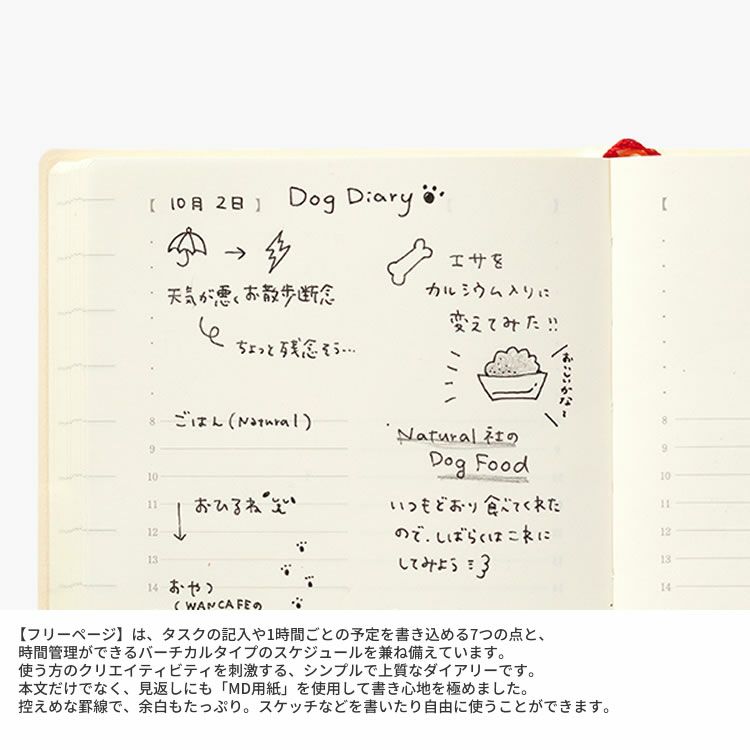 【 10月 2日 】 Dog Diary
天気が悪くお散歩断念
ちょっと残念そう…
エサを
カルシウム入りに
変えてみた!!
おいしいかな〜
8 ごはん(Natural)
9
10
11 おひるね
12
13
14
おやつ
(WANCAFEの
Natural 社の
Dog Food
いつもどおり食べてくれた
ので、しばらくはこれに
してみよう
【
8
9
10
11
12
13
14
【フリーページ】は、タスクの記入や1時間ごとの予定を書き込める7つの点と、
時間管理ができるバーチカルタイプのスケジュールを兼ね備えています。
使う方のクリエイティビティを刺激する、シンプルで上質なダイアリーです。
本文だけでなく、見返しにも「MD用紙」を使用して書き心地を極めました。
控えめな罫線で、余白もたっぷり。スケッチなどを書いたり自由に使うことができます。